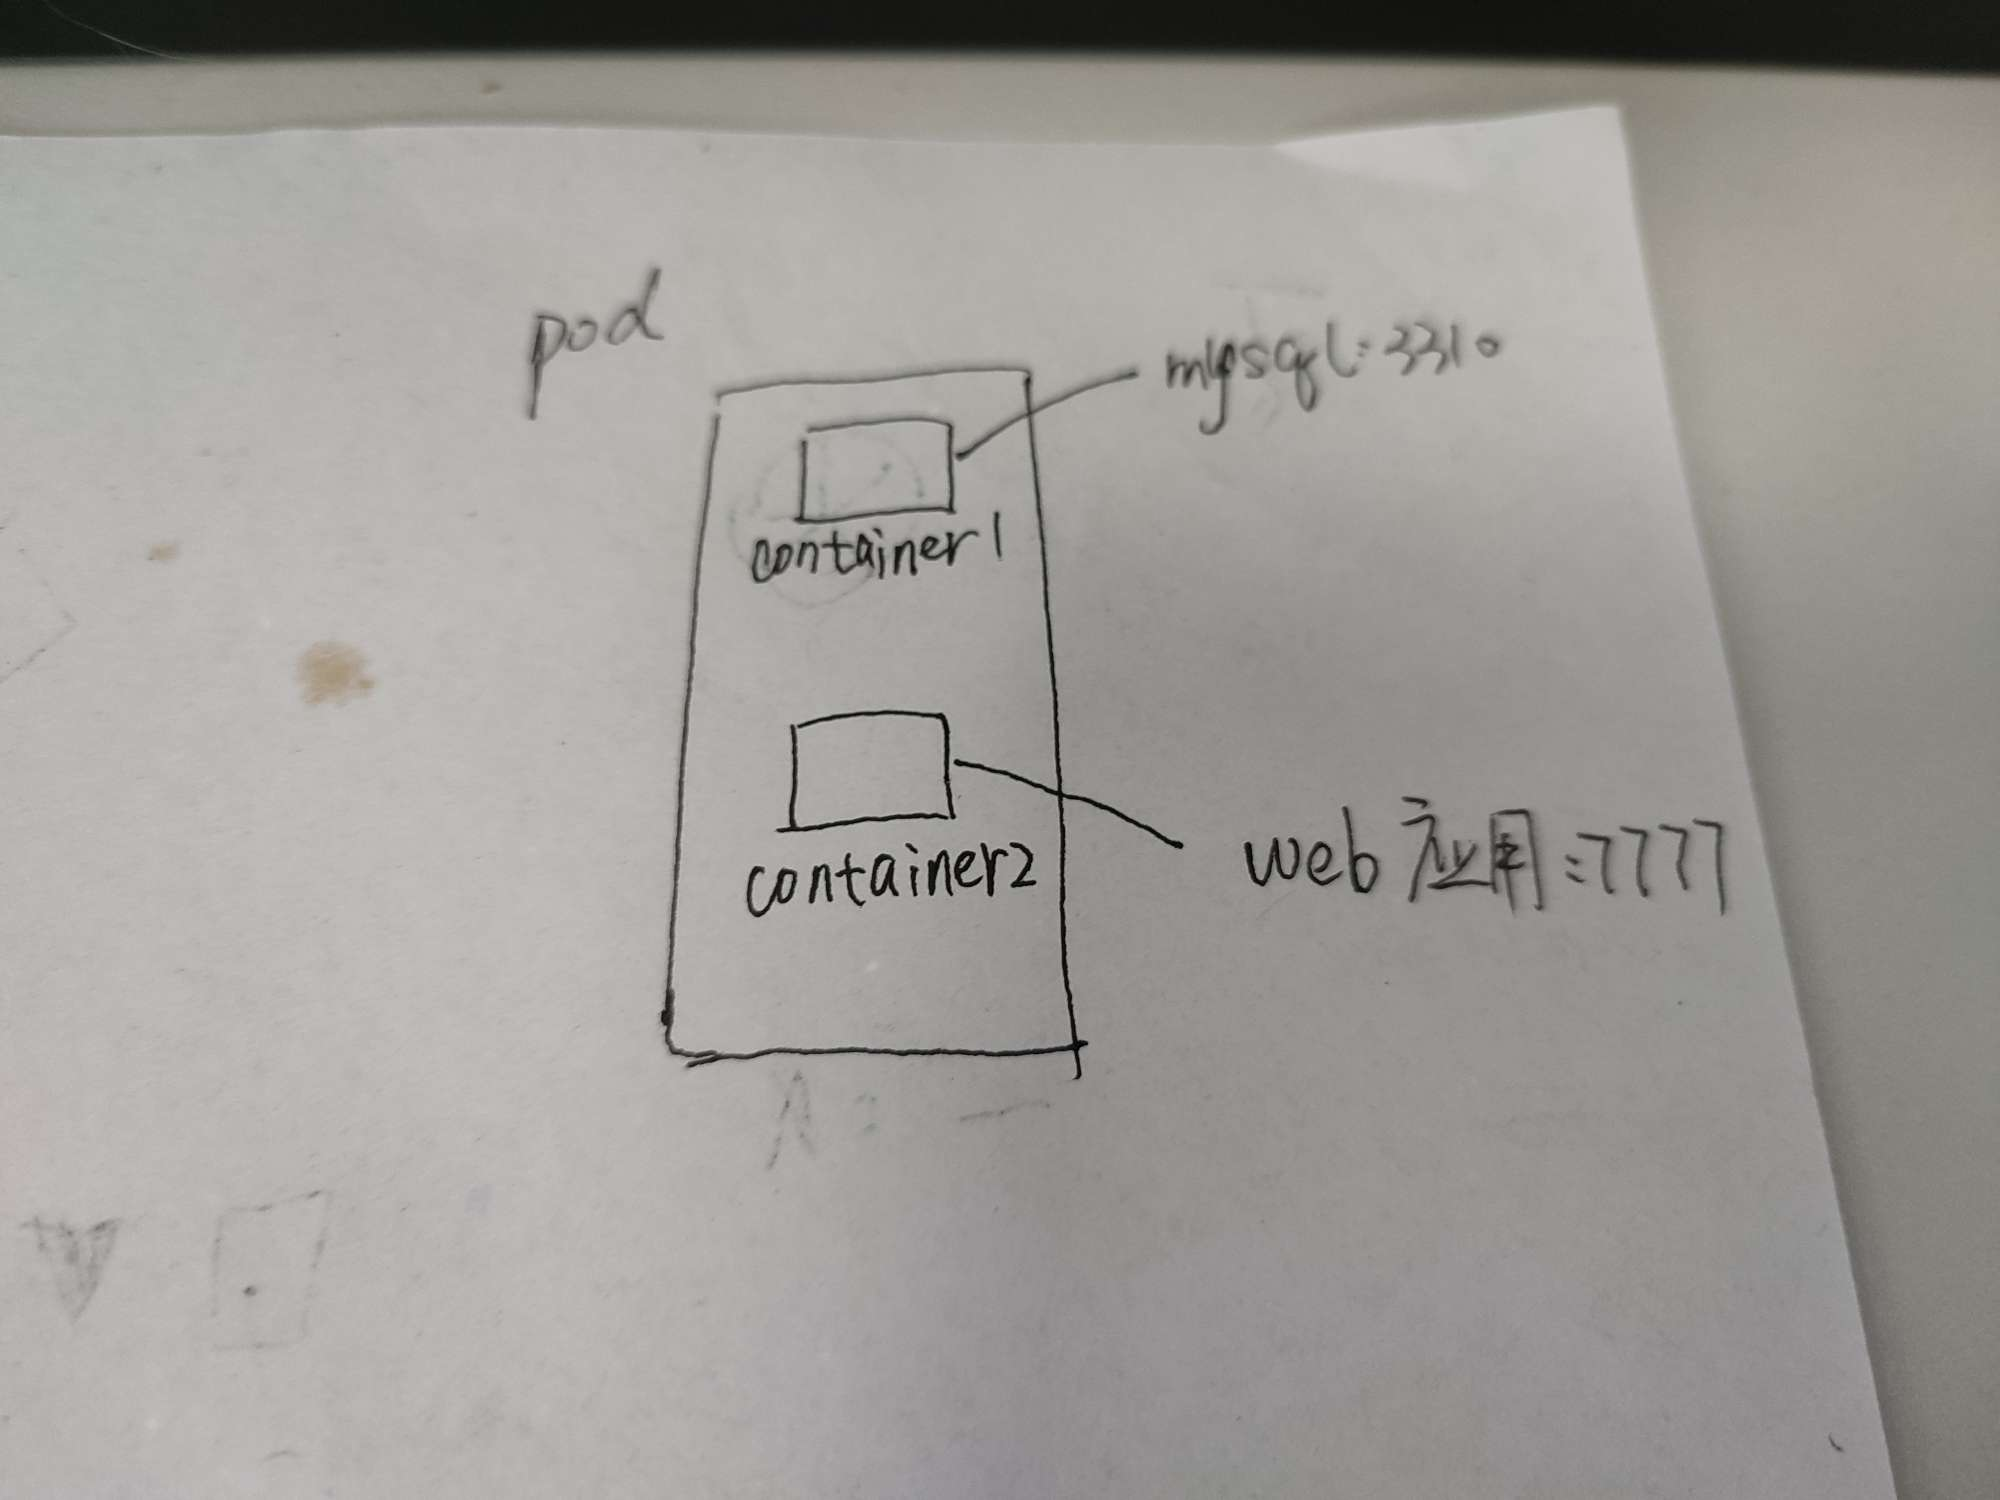 pod
mysql:3310
container1
container2
web应用:7777